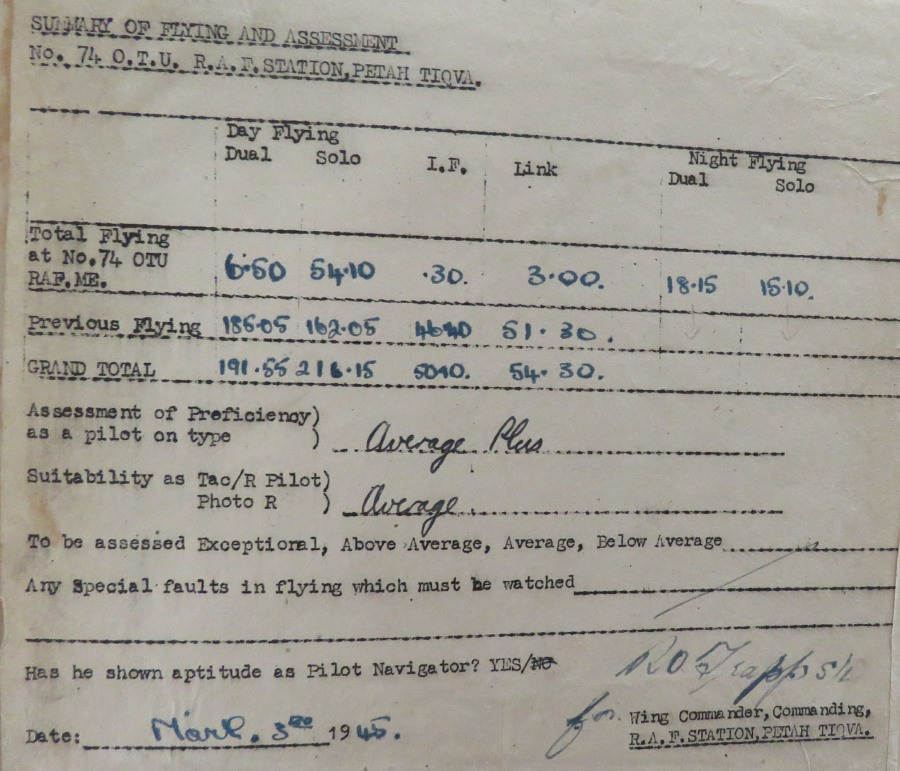 SUMMARY OF FLYING AND ASSESSMENT
No. 74 O.T.U. R.A.F.STATION,PETAH TIQVA.
Day Flying Night Flying
Dual Solo I.F. Link Dual Solo
Total Flying
at No.74 OTU 6.50 54.10 .30. 3.00. 18.15 15.10.
RAF.ME.
Previous Flying 185.05 162.05 51.30.
GRAND TOTAL 191.55 216.15 5010. 54.30.
Assessment of Proficiency)
as a pilot on type ) Average Plus
Suitability as Tac/R Pilot)
Photo R ) Average
To be assessed Exceptional, Above Average, Average, Below Average
Any Special faults in flying which must be watched
Has he shown aptitude as Pilot Navigator? YES/NO
for Wing Commander, Commanding,
R.A.F.STATION,PETAH TIQVA.
Date: March. 3RD 1945.